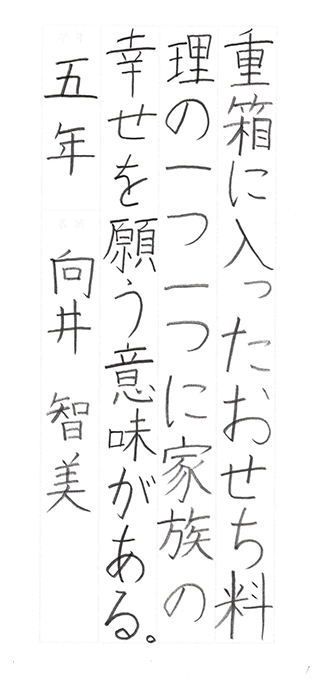 重箱に入ったおせち料
理の一つ一つに家族の
幸せを願う意味がある。
五年 向井 智美